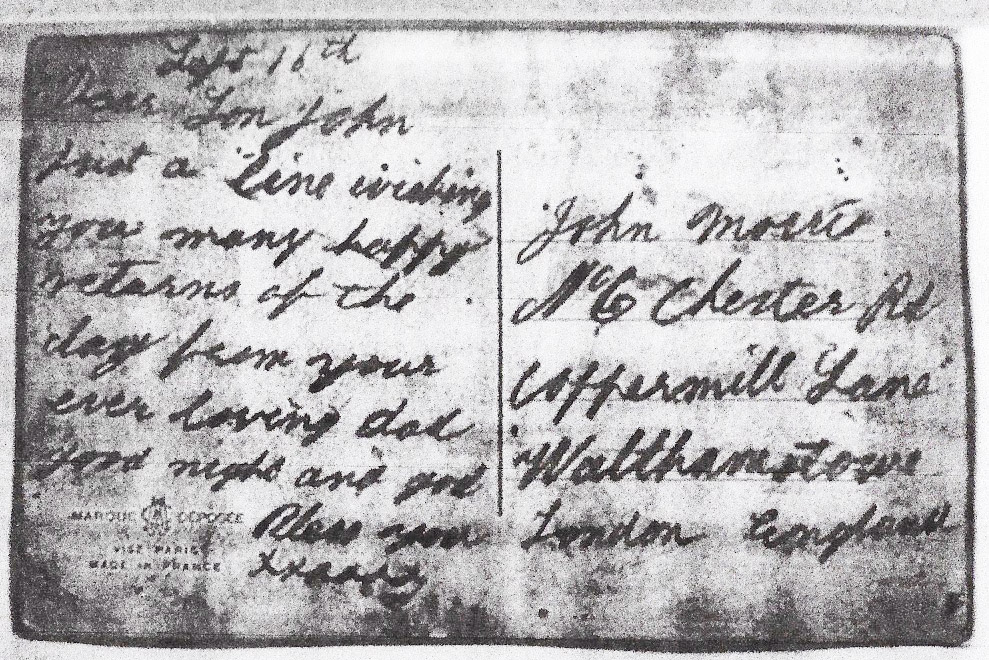 Sept 16th
Dear Son John
Just a line wishing
you many happy
returns of the
day from your
ever loving dad
good night and god
Bless you
MARQUE DEPOSEE
VISE PARIS
MADE IN FRANCE
John
No 6 Chester Rd
Coppermill Lane
Walthamstowe
London England